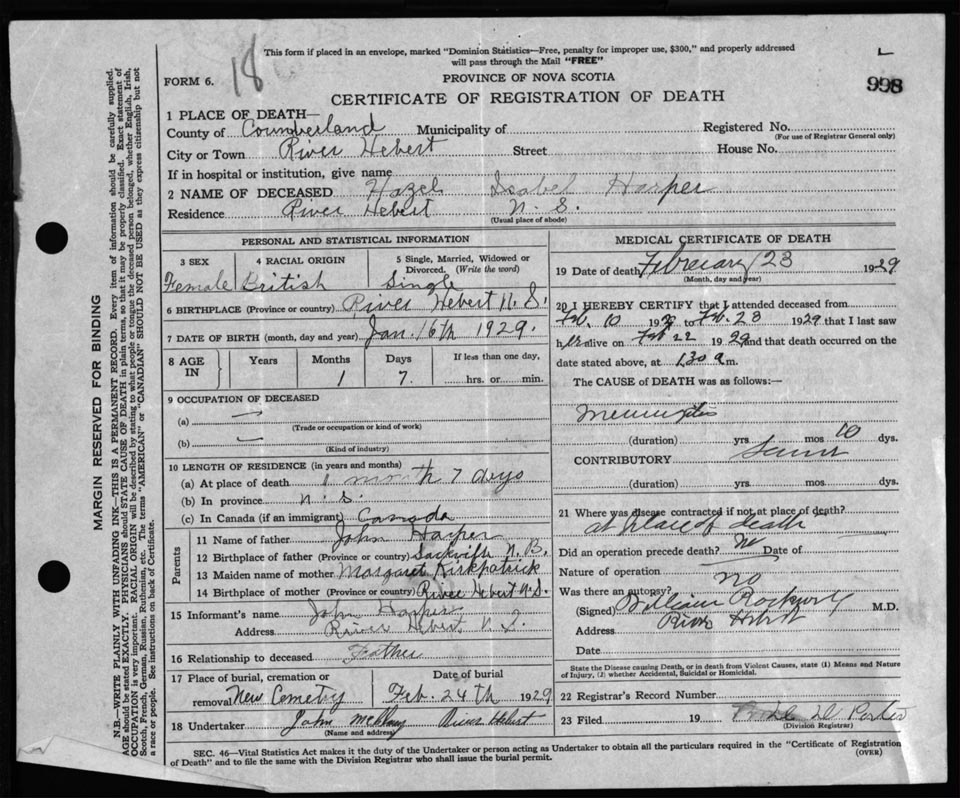 This form if placed in an envelope, marked "Dominion Statistics—Free, penalty for improper use, $300," and properly addressed
will pass through the Mail "FREE"
FORM 6.
18
PROVINCE OF NOVA SCOTIA
998
CERTIFICATE OF REGISTRATION OF DEATH
1 PLACE OF DEATH—
County of Coumberland Municipality of Registered No.
(For use of Registrar General only)
City or Town River Hebert Street House No.
If in hospital or institution, give name
2 NAME OF DECEASED Hazel Isabel Harper
Residence River Hebert N. S.
(Usual place of abode)
PERSONAL AND STATISTICAL INFORMATION
3 SEX 4 RACIAL ORIGIN 5 Single, Married, Widowed or Divorced. (Write the word)
Female British Single
6 BIRTHPLACE (Province or country) River Hebert N. S.
7 DATE OF BIRTH (month, day and year) Jan. 16th 1929.
8 AGE IN Years Months Days If less than one day,
1 7. hrs. or min.
9 OCCUPATION OF DECEASED
(a) —
(Trade or occupation or kind of work)
(b) —
(Kind of industry)
10 LENGTH OF RESIDENCE (in years and months)
(a) At place of death 1 month 7 days
(b) In province N. S.
(c) In Canada (if an immigrant) Canada
Parents
11 Name of father John Harper
12 Birthplace of father (Province or country) Sackville N. B.
13 Maiden name of mother Margaret Kirkpatrick
14 Birthplace of mother (Province or country) River Hebert N. S.
15 Informant's name John Harper
Address River Hebert, N. S.
16 Relationship to deceased Father
17 Place of burial, cremation or removal New Cemetry Date of burial Feb. 24th 1929
18 Undertaker John River Hebert
(Name and address)
MEDICAL CERTIFICATE OF DEATH
19 Date of death February 23 1929
(Month, day and year)
20 I HEREBY CERTIFY that I attended deceased from
Feb. 10 1929 to Feb. 23 1929 that I last saw
her alive on Feb 22 1929 and that death occurred on the
date stated above, at 1.30 a m.
The CAUSE of DEATH was as follows:—
Meningitis
(duration) yrs. mos 10 dys.
CONTRIBUTORY
(duration) yrs. mos. dys.
21 Where was disease contracted if not at place of death?
at place of death
Did an operation precede death? No Date of
Nature of operation
Was there an autopsy? no
(Signed) William Rockwell M.D.
Address River Hebert
Date
State the Disease causing Death, or in death from Violent Causes, state (1) Means and Nature
of Injury, (2) whether Accidental, Suicidal or Homicidal.
22 Registrar's Record Number
23 Filed 19
(Division Registrar)
SEC. 46—Vital Statistics Act makes it the duty of the Undertaker or person acting as Undertaker to obtain all the particulars required in the "Certificate of Registration
of Death" and to file the same with the Division Registrar who shall issue the burial permit.
(OVER)
MARGIN RESERVED FOR BINDING
N.B.—WRITE PLAINLY WITH UNFADING INK—THIS IS A PERMANENT RECORD. Every item of information should be carefully supplied.
AGE should be stated EXACTLY. PHYSICIANS should STATE CAUSE OF DEATH in plain terms, so that it may be properly classified. Exact statement of
OCCUPATION is very important. RACIAL ORIGIN will be described by stating to what people or tongue the deceased person belonged, whether English, Irish,
Scotch, French, German, Russian, Ruthenian, etc. The terms "AMERICAN" or "CANADIAN" SHOULD NOT BE USED as they express citizenship but not
a race or people. See instructions on back of Certificate.